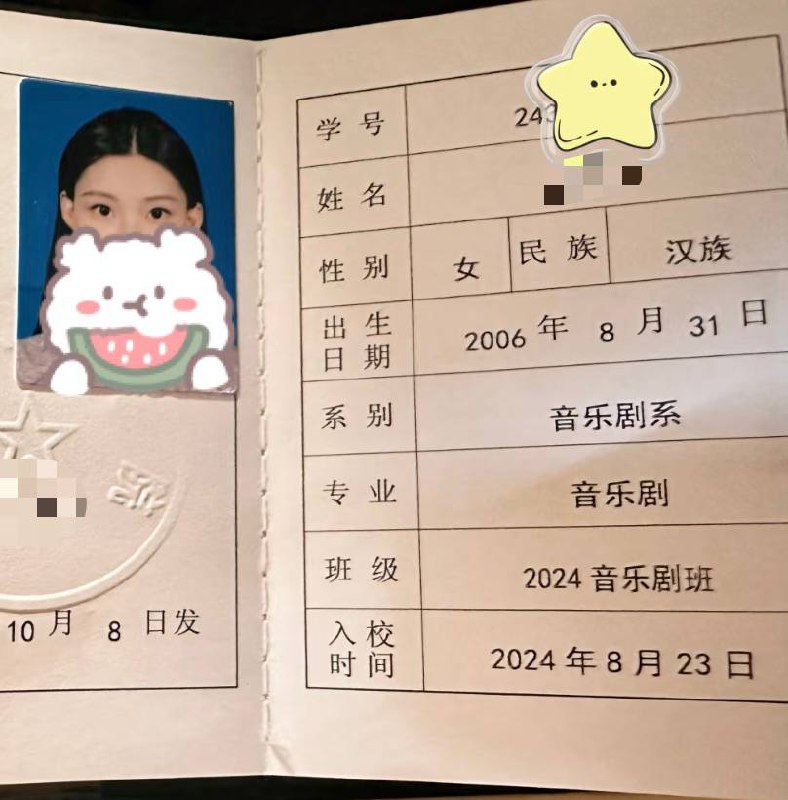 10 月 8 日发
学 号 243
姓 名
性 别 女 民 族 汉族
出 生
日 期 2006 年 8 月 31 日
系 别 音乐剧系
专 业 音乐剧
班 级 2024 音乐剧班
入 校
时 间 2024 年 8 月 23 日